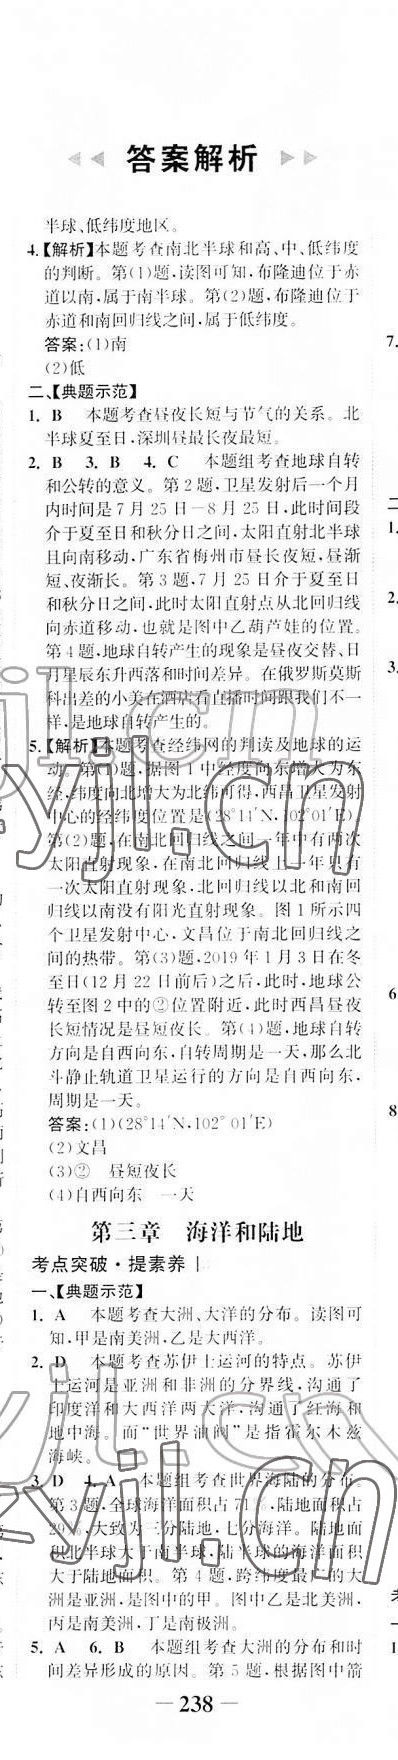 答案解析
半球、低纬度地区。
4.【解析】本题考查南北半球和高、中、低纬度
的判断。第(1)题,读图可知,布隆迪位于赤
道以南,属于南半球。第(2)题,布隆迪位于
赤道和南回归线之间,属于低纬度。
答案:(1)南
(2)低
二、【典题示范】
1. B 本题考查昼夜长短与节气的关系。北
半球夏至日,深圳昼最长夜最短。
2. B 3. B 4. C 本题组考查地球自转
和公转的意义。第2题,卫星发射后一个月
内时间是7月25日—8月25日,此时间段
介于夏至日和秋分日之间,太阳直射北半球
且向南移动,广东省梅州市昼长夜短,昼渐
短、夜渐长。第3题,7月25日介于夏至日
和秋分日之间,此时太阳直射点从北回归线
向赤道移动,也就是图中乙葫芦娃的位置。
第4题,地球自转产生的现象是昼夜交替、日
月星辰东升西落和时间差异。在俄罗斯莫斯
科出差的小美在酒店看直播时间跟我们不一
样,是地球自转产生的。
5.【解析】本题考查经纬网的判读及地球的运
动。第(1)题,据图1中经度向东增大为东
经,纬度向北增大为北纬可得,西昌卫星发射
中心的经纬度位置是(28°14′N,102°01′E)
第(2)题,在南北回归线之间一年中有两次
太阳直射现象,在南北回归线上一年只有
一次太阳直射现象,北回归线以北和南回
归线以南没有阳光直射现象。图1所示四
个卫星发射中心,文昌位于南北回归线之
间的热带。第(3)题,2019年1月3日在冬
至日(12月22日前后)之后,此时,地球公
转至图2中的②位置附近,此时西昌昼夜
长短情况是昼短夜长。第(4)题,地球自转
方向是自西向东,自转周期是一天,那么北
斗静止轨道卫星运行的方向是自西向东,
周期是一天。
答案:(1)(28°14′N,102°01′E)
(2)文昌
(3)② 昼短夜长
(4)自西向东 一天
第三章 海洋和陆地
考点突破·提素养
一、【典题示范】
1. A 本题考查大洲、大洋的分布。读图可
知,甲是南美洲,乙是大西洋。
2. D 本题考查苏伊士运河的特点。苏伊
士运河是亚洲和非洲的分界线,沟通了
印度洋和大西洋两大洋,沟通了红海和
地中海。而“世界油阀”是指霍尔木兹
海峡。
3. D 4. A 本题组考查世界海陆的分布。
第3题,全球海洋面积占71%,陆地面积占
29%,大致为三分陆地,七分海洋。陆地面
积北半球大于南半球,陆半球的海洋面积
大于陆地面积。第4题,跨纬度最广的大
洲是亚洲,是图中的甲。图中乙是北美洲,
丙是南美洲,丁是南极洲。
5. A 6. B 本题组考查大洲的分布和时
间差异形成的原因。第5题,根据图中箭
238